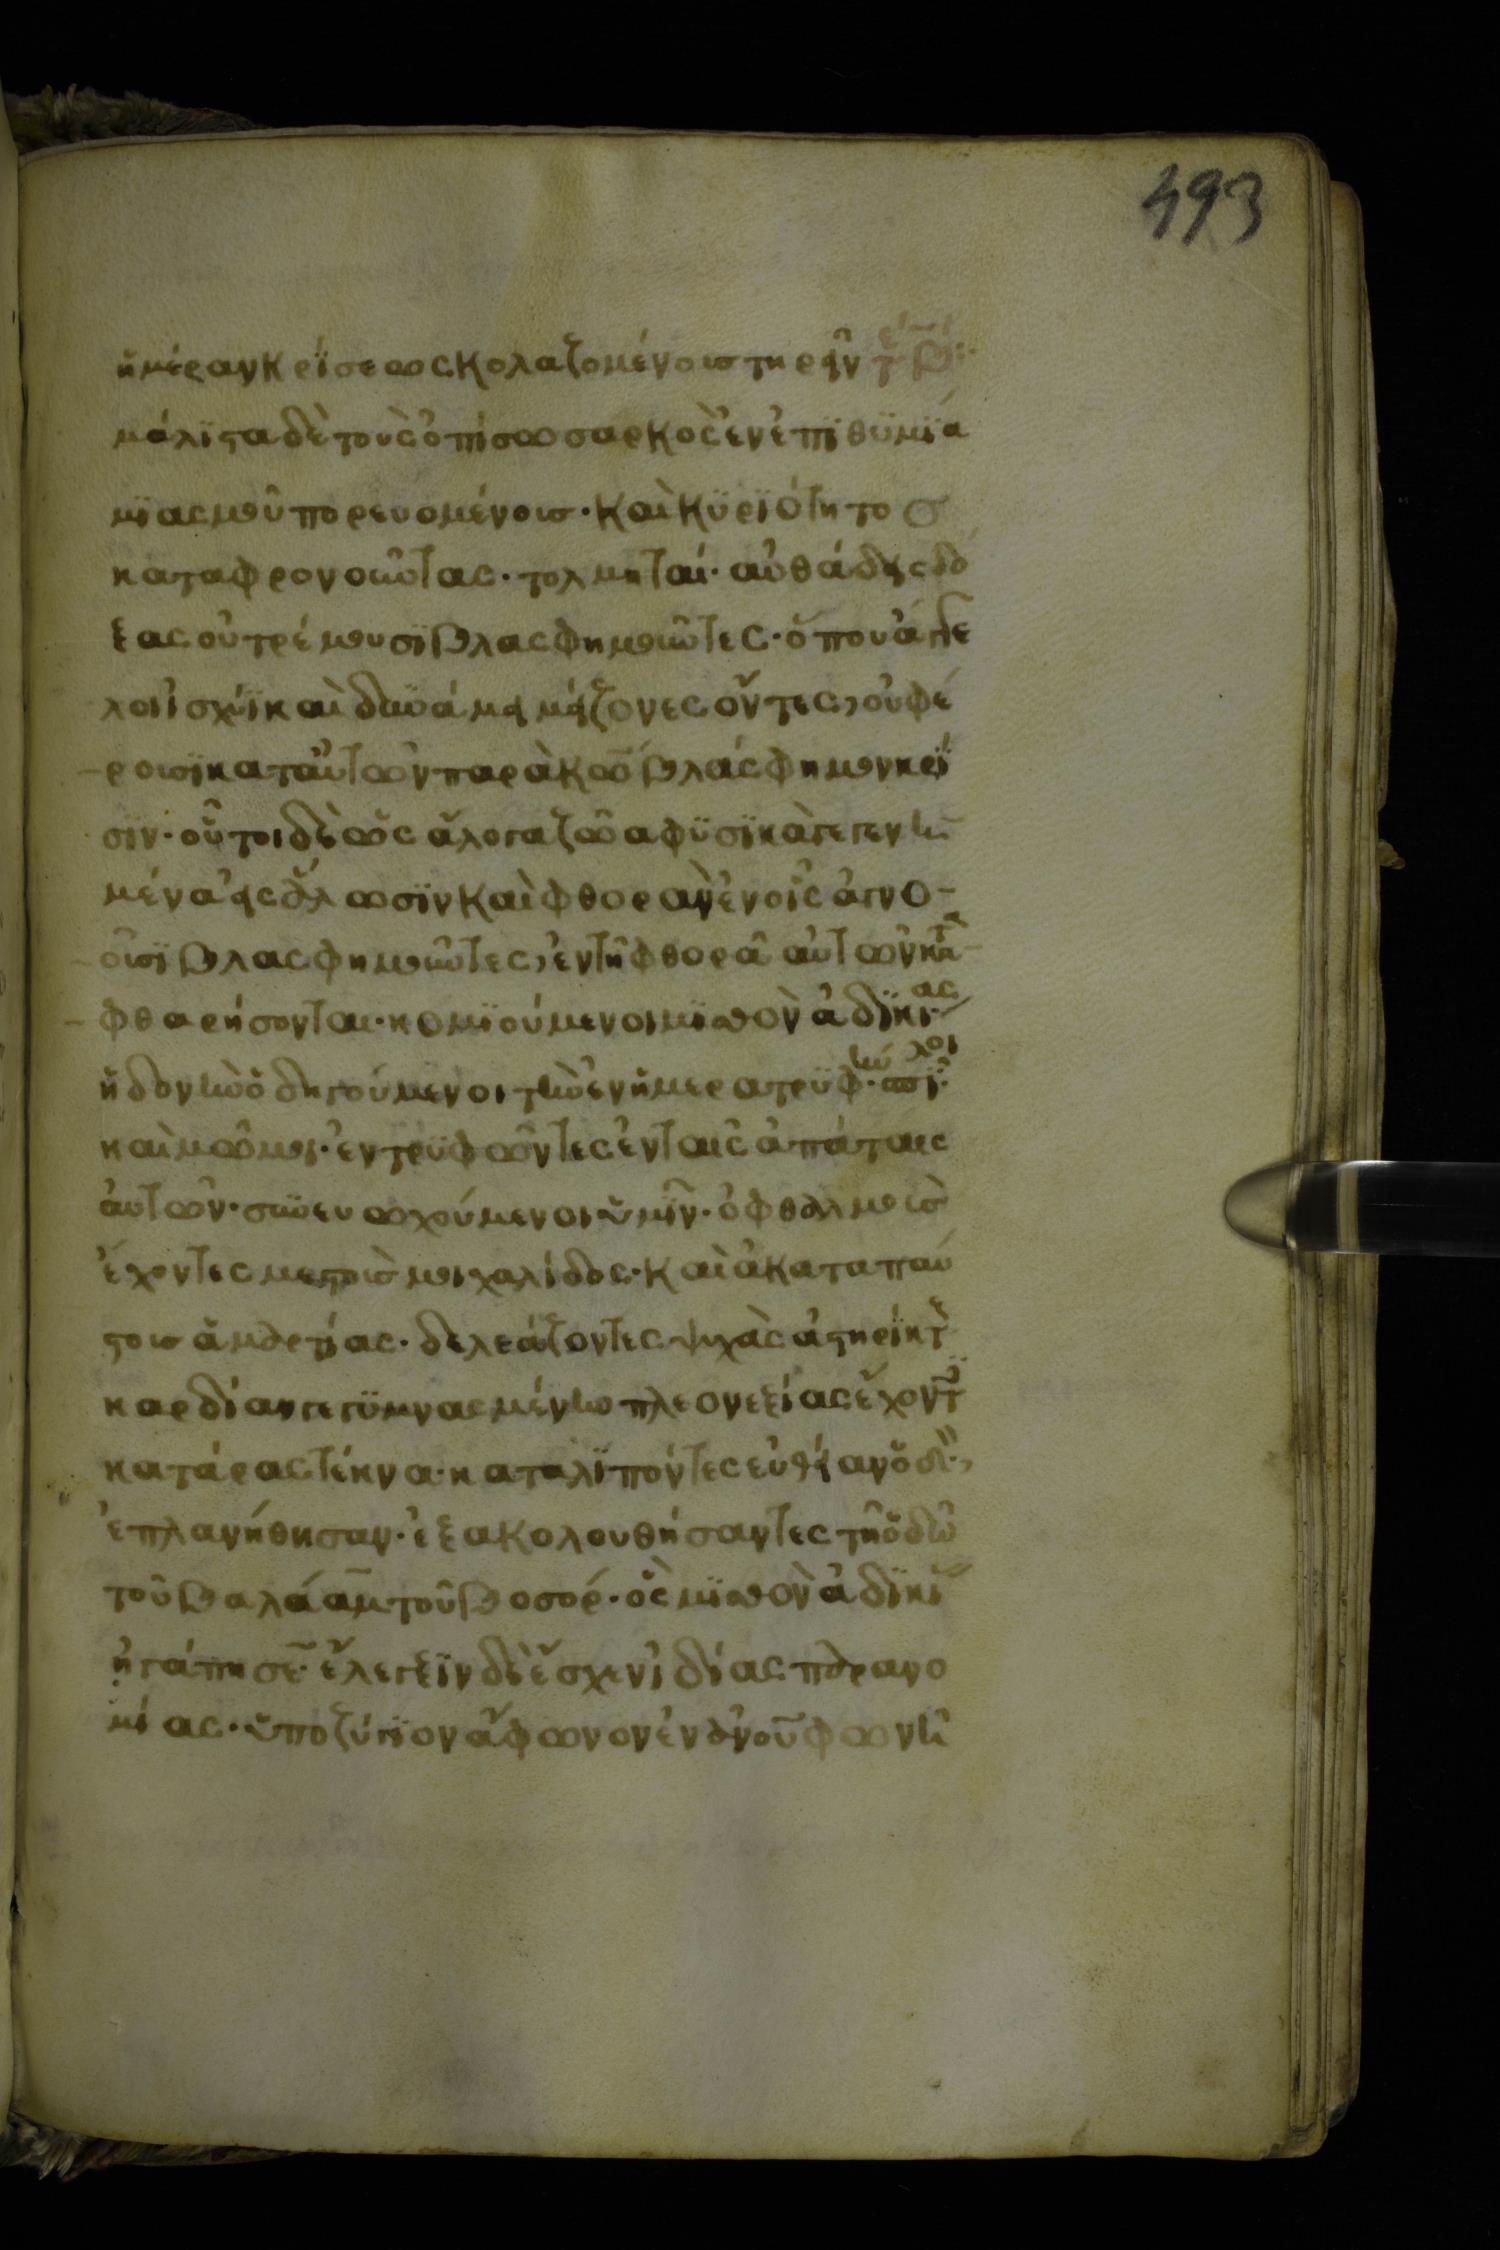 493
ἡμέραν κρϊσεως κολαζομένοις τηρεῖν τε
μάλϊστα δὲ τοὺς ὀπίσω σαρκὸς ἐν ἐπϊθϋμϊα
μϊασμοῦ πορευομένοις· καὶ κϋρϊότητος
καταφρονοῦντας· τολμηταί· αὐθάδεις δό
ξας οὐ τρέμουσϊ βλασφημοῦντες· ὅπου ἄγγε
λοι ἰσχύϊ καὶ δυνάμει μείζονες ὄντες, οὐ φέ
ροισϊ κατ αὐτῶν παρὰ κω βλάσφημον κρϊ
σϊν· οὗτοι δὲ ὡς ἄλογα ζῶα φϋσϊκὰ γεγενη
μένα εἰς ἅλωσϊν καὶ φθορὰν ἐν οἷς ἀγνο
οῦσϊ βλασφημοῦντες, ἐν τῆ φθορᾶ αὐτῶν κατα
φθαρήσονται· κομϊούμενοι μϊσθὸν ἀδϊκίας·
ἡδονὴν ὁδηγούμενοι τὴν ἐν ἡμερα τρϋφήν· σπϊλοι
καὶ μῶμοι· ἐντρϋφῶντες ἐν ταῖς ἀπάταις
αὐτῶν· συνευωχούμενοι ὑμῖν· ὀφθαλμοὺσ
ἔχοντες μεστοὺσ μοιχαλίδος· καὶ ἀκαταπαύ
στοισ ἁμαρτίας· δελεάζοντες ψυχὰς ἀστηρίκτ
καρδίαν γεγϋμνασμένην πλεονεξίας ἔχοντ
κατάρας τέκνα· καταλϊπόντες εὐθείαν ὁδὸν,
ἐπλανήθησαν· ἐξακολουθήσαντες τῆ ὁδῶ
τοῦ βαλάαμ τοῦ βοσόρ· ὃς μϊσθὸν ἀδϊκί
ἠγάπησε· ἔλεγξϊν δὲ ἔσχεν ἰδίας παρανο
μίας· ὑποζύγϊον ἄφωνον ἐν ἀνοῦ φωνῆ